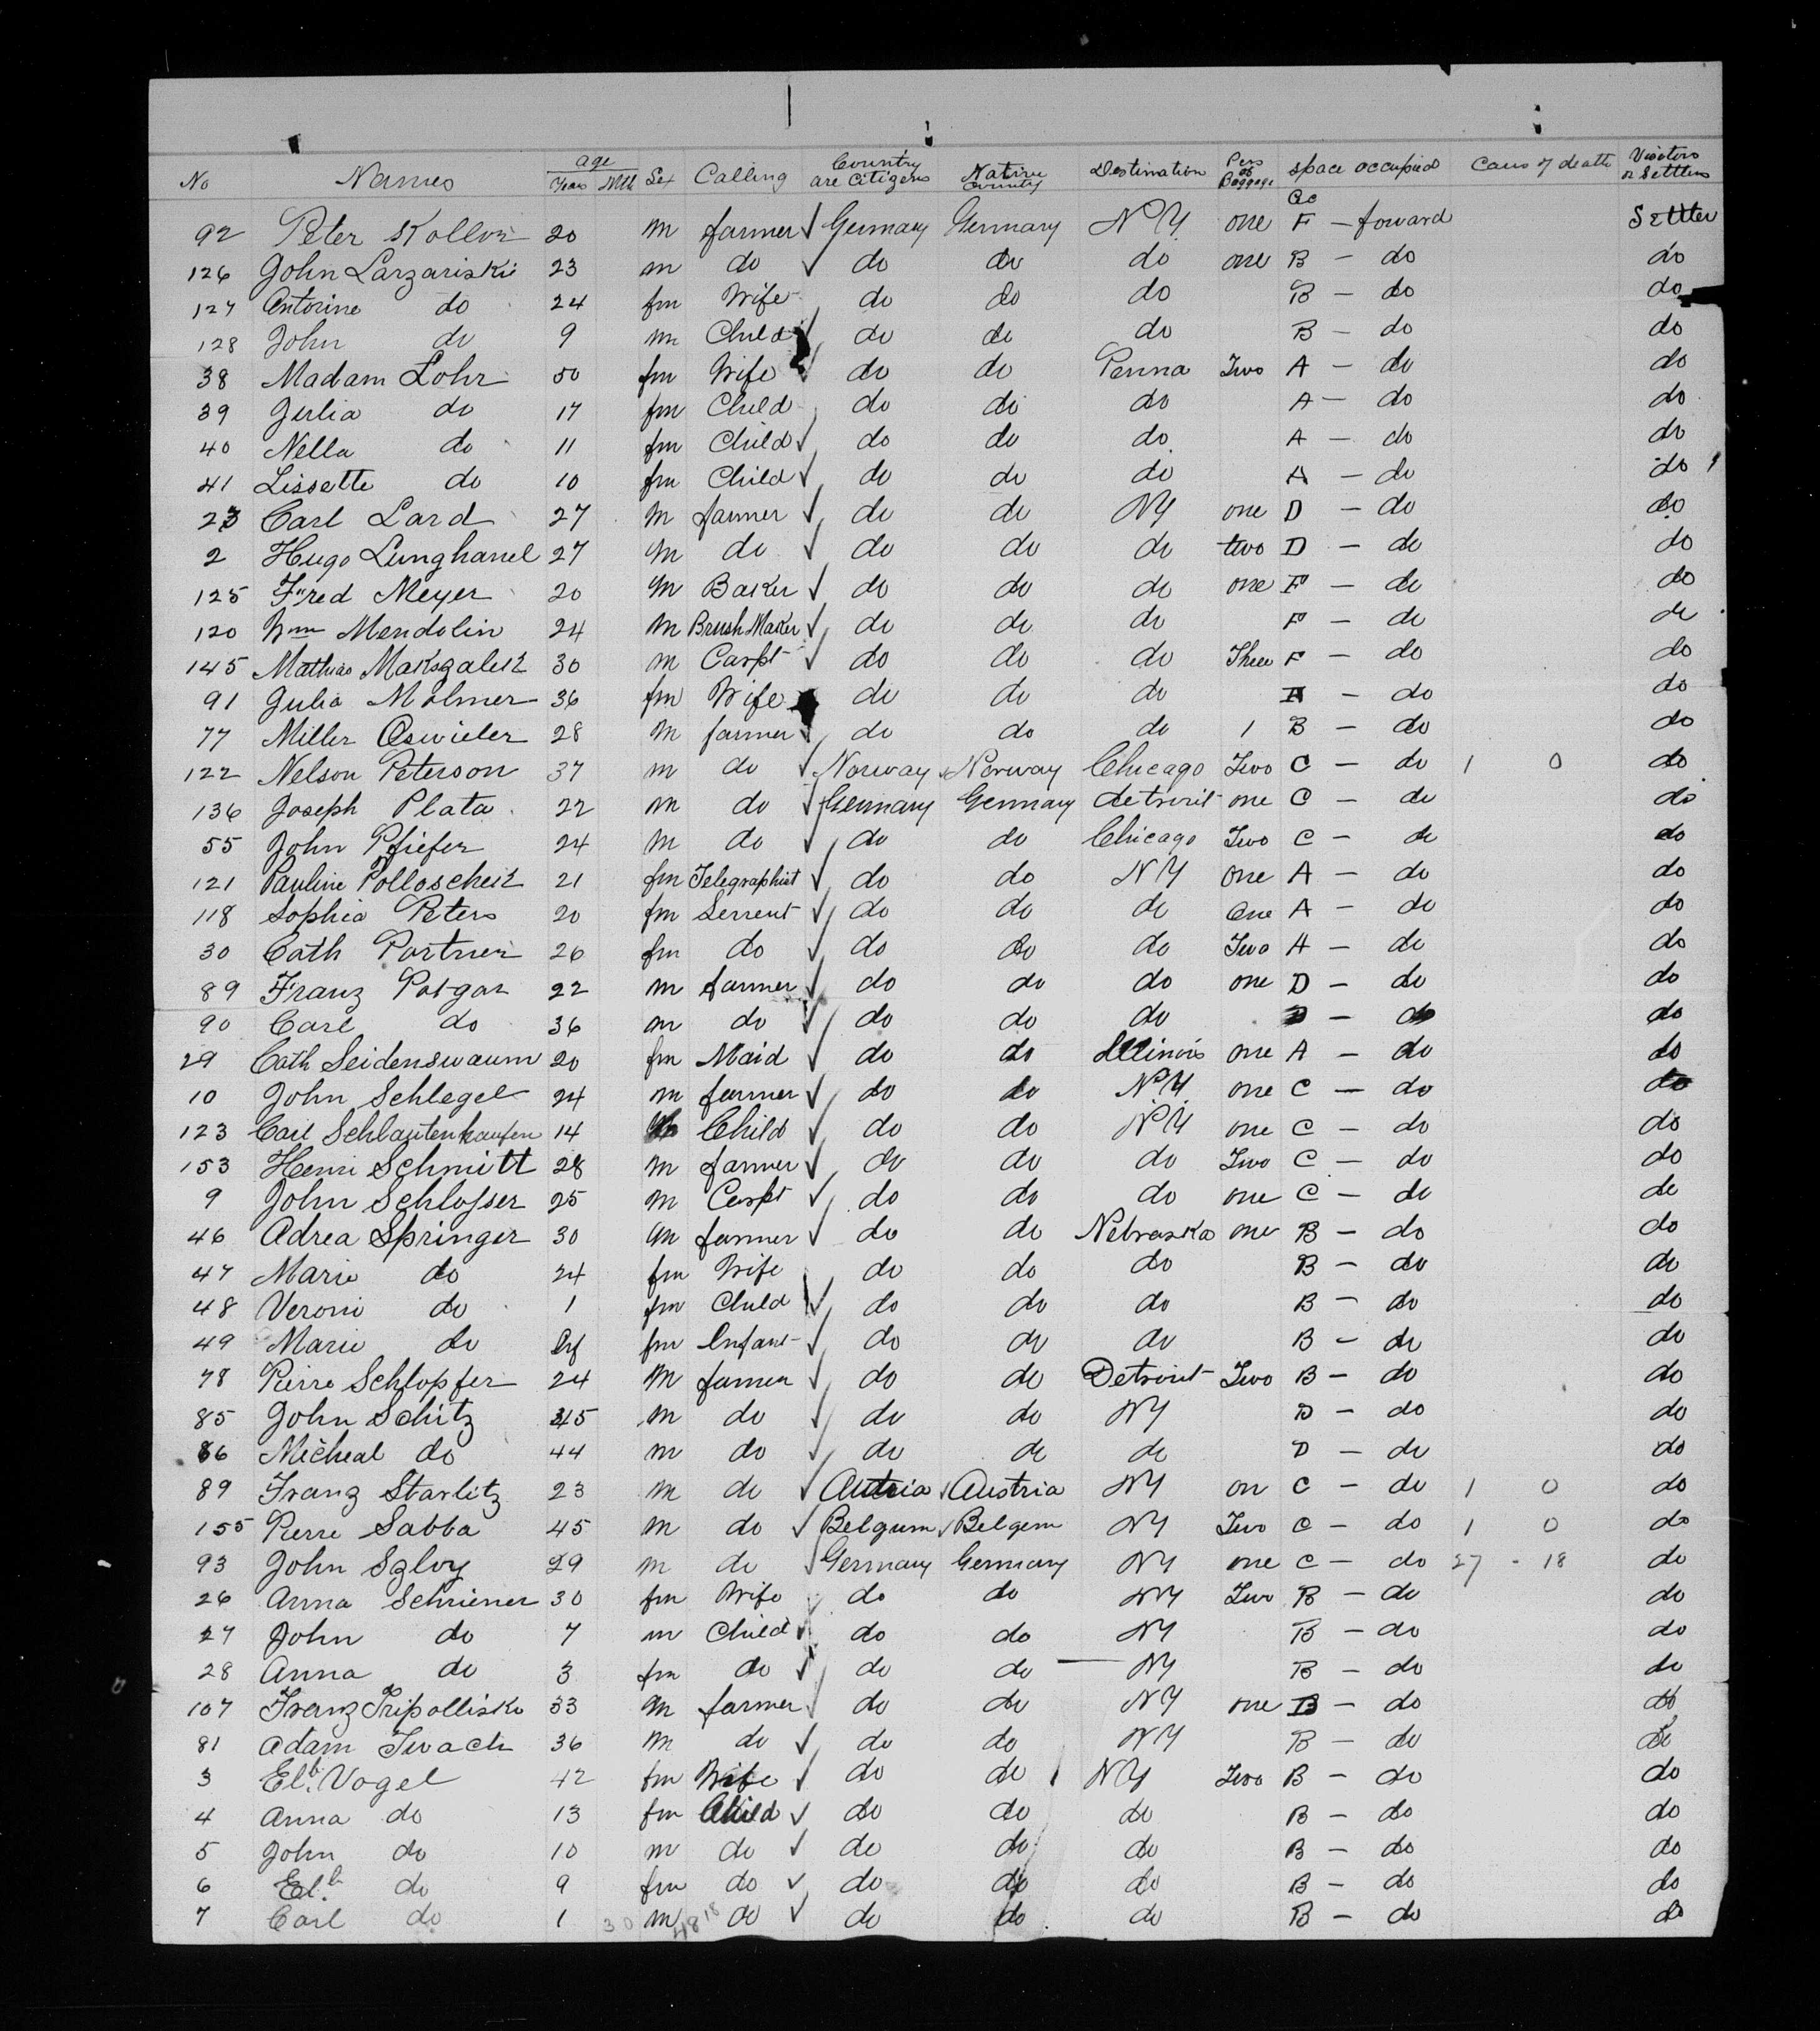 No Names age Years Mth Sex Calling Country are Citizens Native Country Destination Pcs of Baggage space occupied Caus of death Visitors or Settlers
92 Peter 20 m farmer ✓ Germany Germany N.Y. one F - forward Settler
126 John Larzariski 23 m do ✓ do do do one B - do do
127 Antorine do 24 fm Wife do do do B - do do
128 John do 9 m Child ✓ do do do B - do do
38 Madam Lohr 50 fm Wife ✓ do do Penna Two A - do do
39 Julia do 17 fm Child do do do A - do do
40 Nella do 11 fm Child ✓ do do do A - do do
41 Lissette do 10 fm Child ✓ do do do A - do do
23 Carl Lard 27 m farmer ✓ do do NY one D - do do
2 Hugo Lunghanel 27 m do ✓ do do do two D - do do
125 Fred Meyer 20 m Baker ✓ do do do one F - do do
120 Wm Mendolin 24 m Brush Maker ✓ do do do F - do do
145 Mathias 30 m Carpt ✓ do do do Three F - do do
91 Julia Molmer 36 fm Wife do do do A - do do
77 Miller Oswieler 28 m farmer ✓ do do do 1 B - do do
122 Nelson Peterson 37 m do ✓ Norway ✓ Norway Chicago Two C - do 1 0 do
136 Joseph Plata 22 m do ✓ Germany Germany detroit one C - do do
55 John Pfiefer 24 m do ✓ do do Chicago Two C - do do
121 Pauline Polloscheik 21 fm Telegraphist ✓ do do NY one A - do do
118 Sophia Peters 20 fm Servent ✓ do do do One A - do do
30 Cath Portner 26 fm do ✓ do do do Two A - do do
89 Franz Potgar 22 m farmer ✓ do do do one D - do do
90 Carl do 36 m do ✓ do do do D - do do
29 Cath Seidenswaum 20 fm Maid ✓ do do Illinois one A - do do
10 John Schlegel 24 m farmer ✓ do do N.Y. one C - do do
123 Carl Schlautenhaufen 14 m Child ✓ do do N.Y one C - do do
153 Henri Schmitt 28 m farmer ✓ do do do Two C - do do
9 John Schlosser 25 m Carpt ✓ do do do one C - do do
46 Adrea Springer 30 m farmer ✓ do do Nebraska one B - do do
47 Marie do 24 fm Wife do do do B - do do
48 Veroni do 1 fm Child ✓ do do do B - do do
49 Marie do Inf fm Infant ✓ do do do B - do do
78 Pierre Schlopfer 24 m farmer ✓ do do Detroit Two B - do do
85 John Schitz 45 m do ✓ do do NY D - do do
86 Micheal do 44 m do ✓ do do do D - do do
89 Franz Starlitz 23 m do ✓ Autria ✓ Austria NY on C - do 1 0 do
155 Pierre Sabba 45 m do ✓ Belgum ✓ Belgem NY Two C - do 1 0 do
93 John Szloy 29 m do ✓ Germany Germany NY one C - do 27 - 18 do
26 Anna Schriener 30 fm Wife do do NY Two B - do do
27 John do 7 m Child ✓ do do NY B - do do
28 Anna do 3 fm do ✓ do do NY B - do do
107 Franz Tripollisko 33 m farmer ✓ do do NY one B - do do
81 Adam Twach 36 m do ✓ do do NY B - do do
3 Elb. Vogel 42 fm Wife ✓ do do NY Two B - do do
4 Anna do 13 fm Child ✓ do do do B - do do
5 John do 10 m do ✓ do do do B - do do
6 Elb. do 9 fm do ✓ do do do B - do do
7 Carl do 1 m do ✓ do do do B - do do
30 48 18